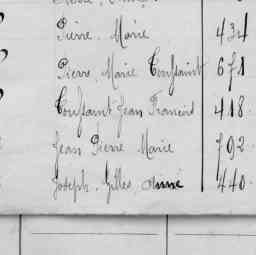 Pierre, Marie 434
Pierre, Marie Toussaint 678
Toussaint Jean Francois 418.
Jean Pierre Marie 792.
Joseph, Gilles, Aimé 440.